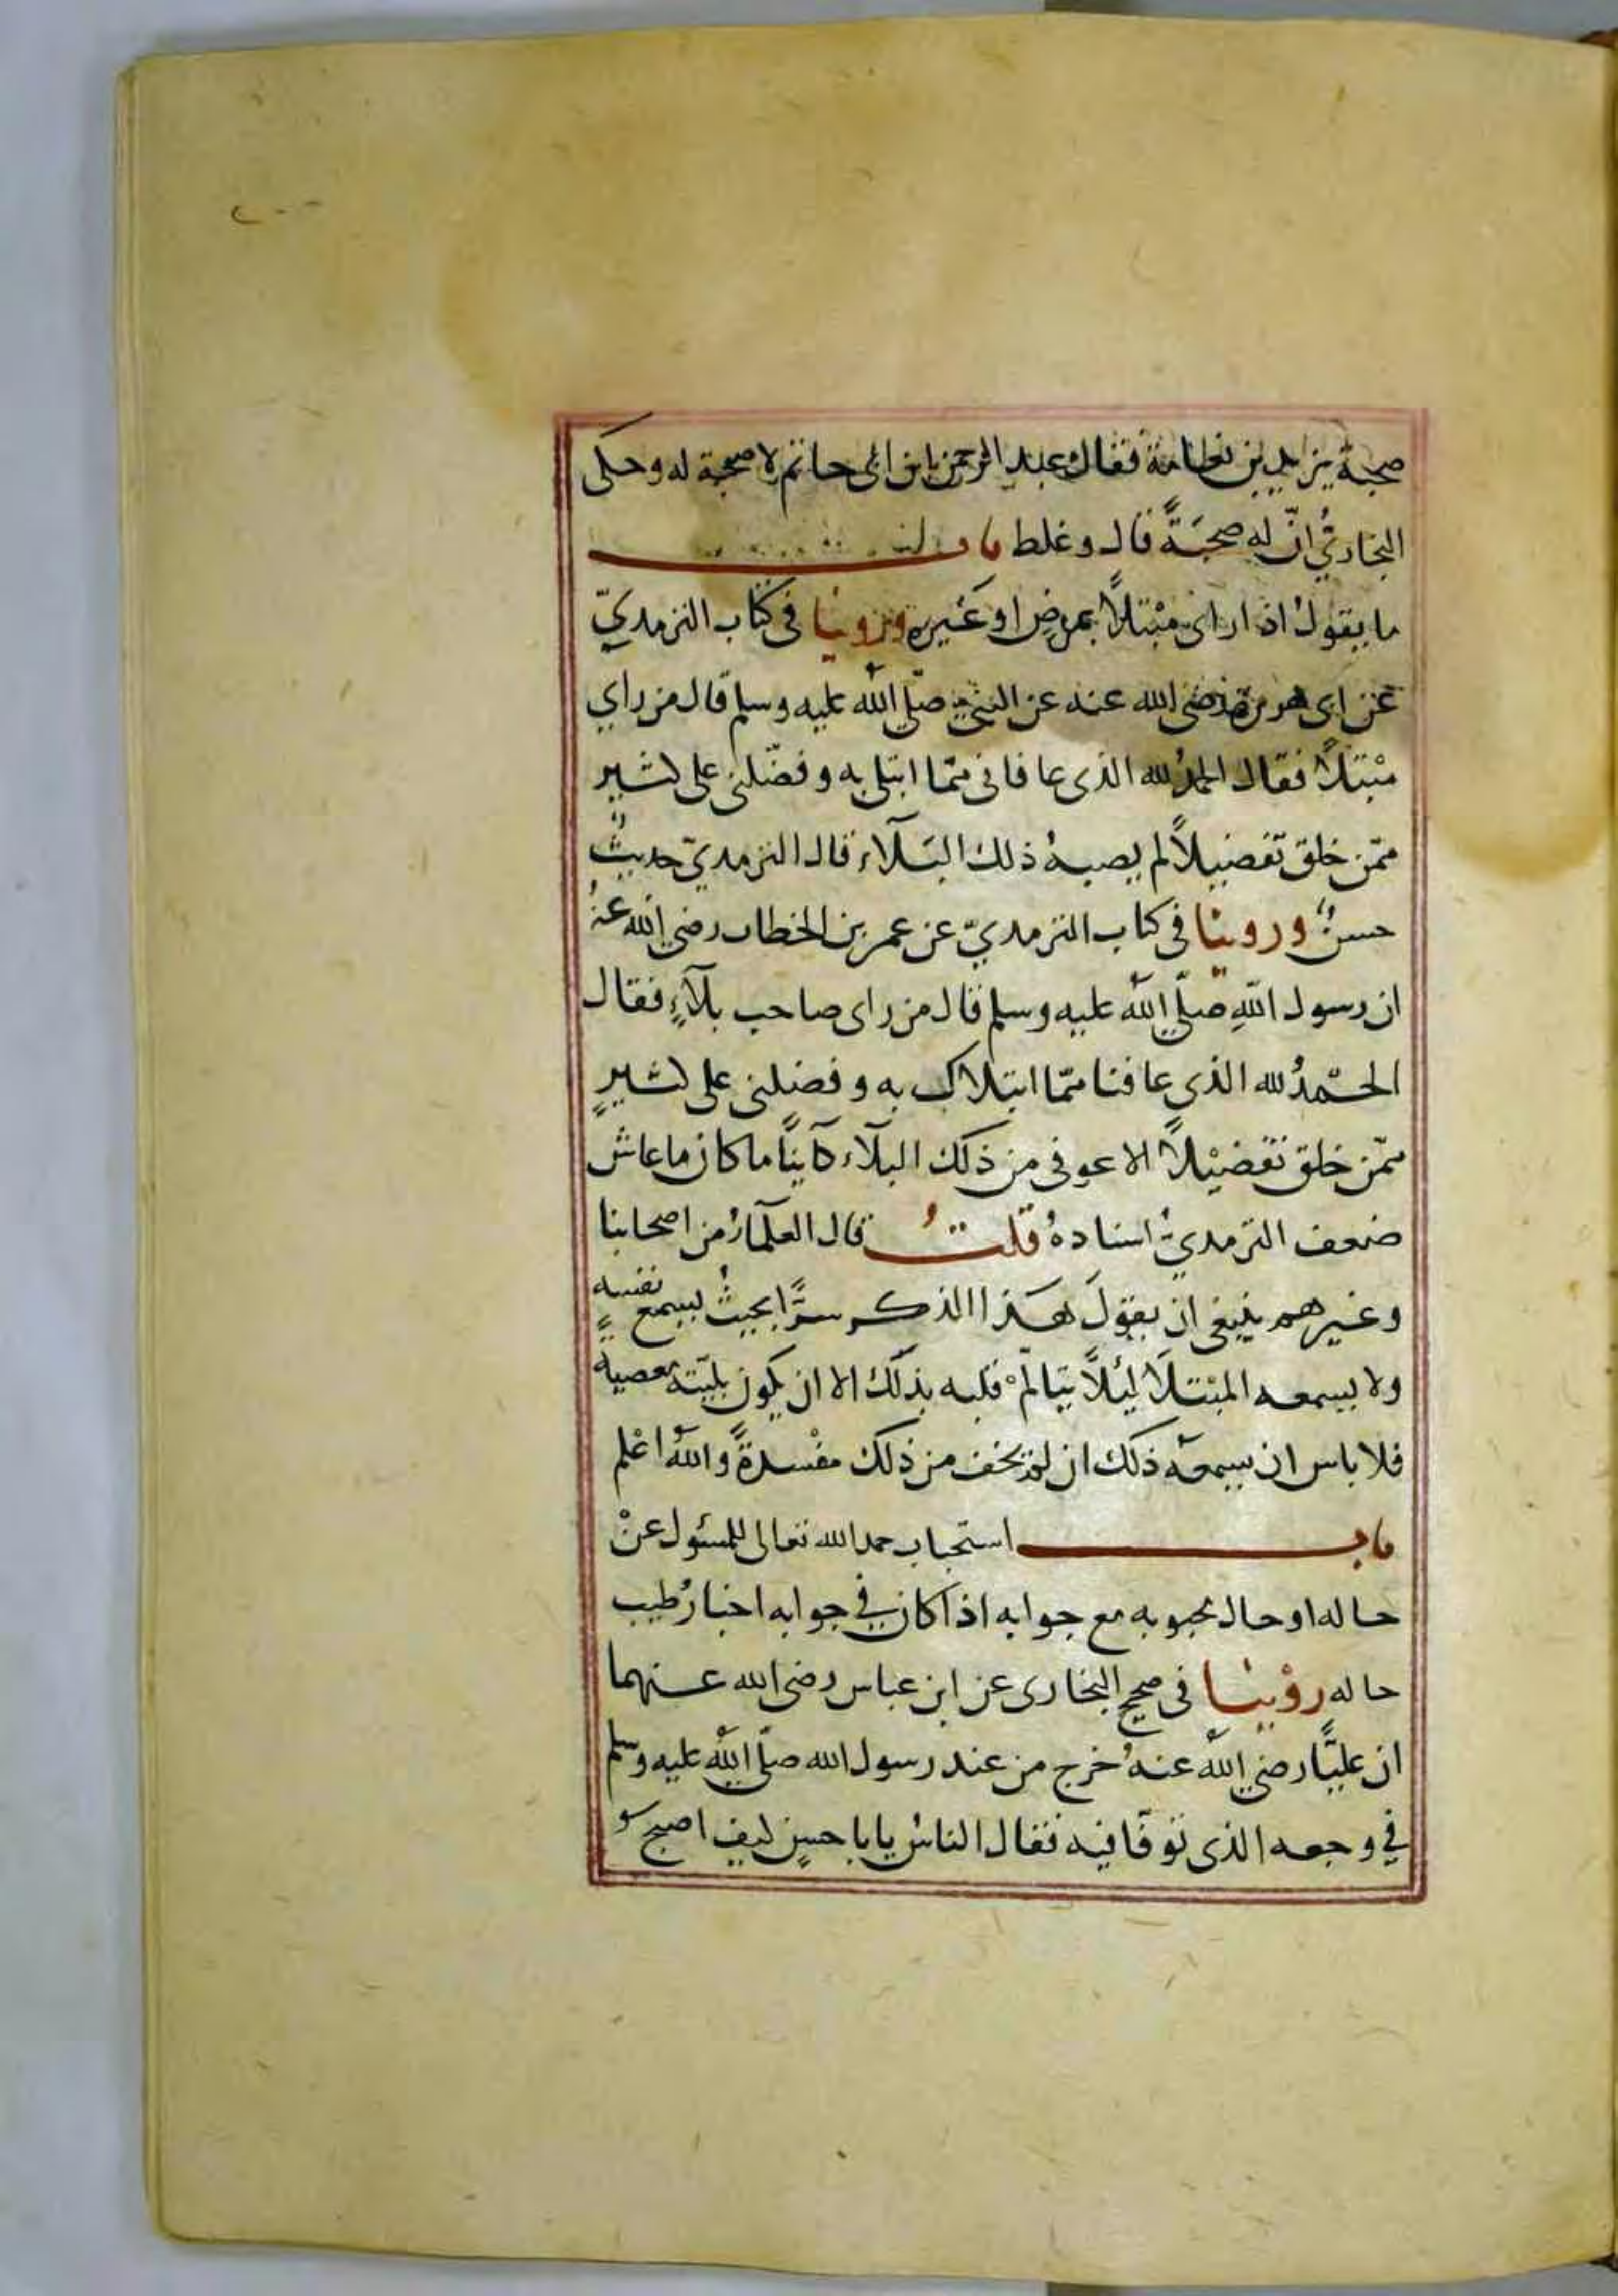 صحبة يزيد بن نعامة فقال عبد الرحمن بن ابى حاتم لا صحبة له وحكى
البخارىُّ انّ له صحبَةً قال وغلط باب
ما يقول اذا راى مبْتلاً بمرضٍ او غَيره وروينا فى كتاب الترمدىّ
عن ابى هريرة رضى الله عنه عن النبىّ صلّى الله عليه وسلم قال من راي
مبْتلاً فقال الحمدُ لله الذى عافانى ممّا ابتلى به وفضّلنى على كثير
ممّن خلق تفضيلاً لم يصبه ذلك البَلآء قال الترمدىّ حديثٌ
حسنٌ وروينا فى كتاب الترمدىّ عن عمر بن الخطاب رضى الله عنهُ
ان رسول اللهِ صلّى الله عليه وسلم قال من راى صاحب بلآءٍ فقال
الحَمدُ لله الذى عافنا ممّا ابتلاك به وفضلنى على كثيرٍ
ممّن خلق تفضيْلاً الا عوفى من ذلك البلآء كآينًا ما كان ما عاش
ضعف الترمدىُّ اسنادهُ قلتُ قال العلمآءُ من اصحابنا
وغيرهم ينبغى ان يقولَ هذا الذكر سرًّا بحيثُ يسمع نفسه
ولا يسمعه المبْتلاَ ليُلاًّ يتالّمْ قلبه بذلك الا ان يكون بليّته معصية
فلا باس ان يسمعه ذلك ان لم يخف من ذلك مفْسدةً والله اعْلم
باب استحباب حمد الله تعالى للمسئول عنْ
حاله او حال محبوبه مع جوابه اذا كان في جوابه اخبارُ طيب
حاله روْينا فى صحيح البخارى عن ابن عباس رضى الله عنهما
ان عليًّا رضى الله عنهُ خرج من عند رسول الله صلّى الله عليه وسلم
في وجعه الذى توفّا فيه فقال الناسُ يا با حسنٍ كيف اصبح